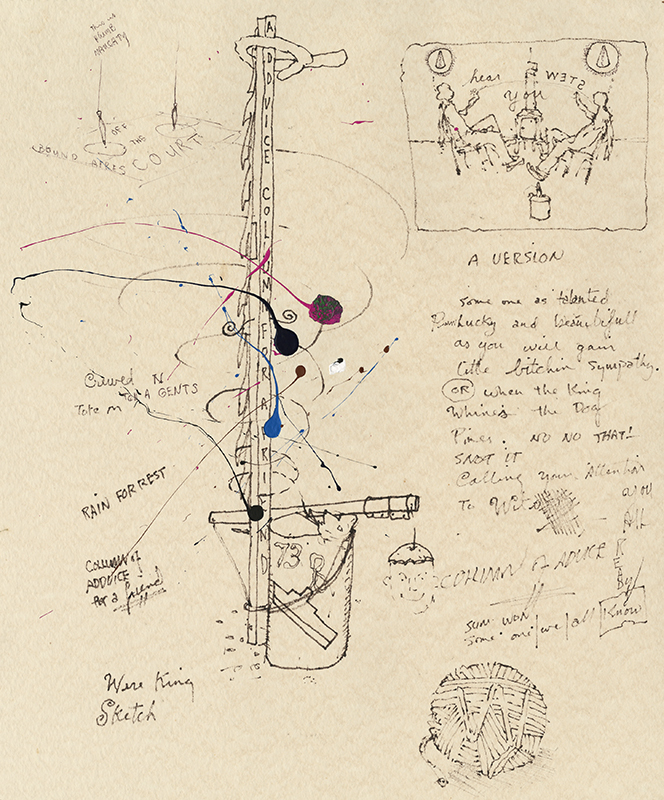 PLUMB
OFF
THE
BOUND APRES COURT
ADDVICE COLUMN FOR A FRIEND
hear WETS
you
A VERSION
some one as talanted
and beautifull
as you will gain
little bitchin sympathy.
OR when the King
Whines the Dog
Pines. NO NO THAT!
SNOT IT
Calling your Attention
To
All
READY
COLUMN of ADDVICE
SUM WON
some one/we/all Know
Curved N
FOR A GENTS
Tote m
RAIN FORREST
73
COLUMN of
ADDVICE
For a friend
Were King
Sketch